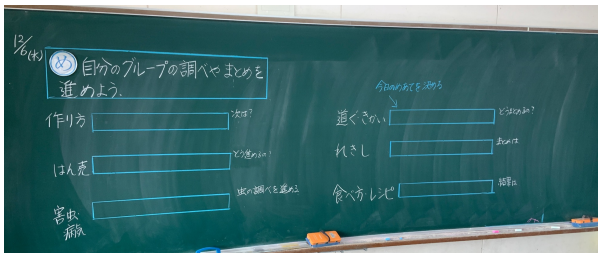 12/6(水)
め 自分のグループの調べやまとめを
進めよう。
作り方
次は?
はん売
どう進めるの?
害虫・
病気
虫の調べを進める
今日のめあてを決める
道ぐきかい
どうまとめるの?
れきし
まとめは
食べ方・レシピ